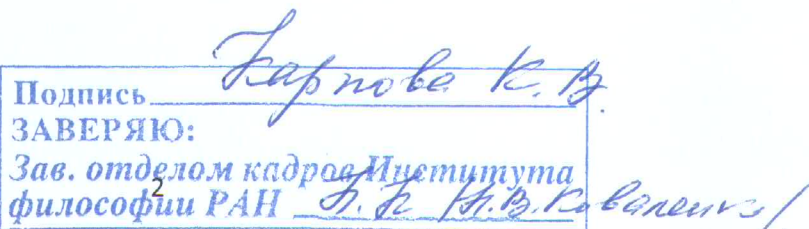 Подпись Карпова К. В.
ЗАВЕРЯЮ:
Зав. отделом кадров Института
2
философии РАН /Л.В. Коваленко/